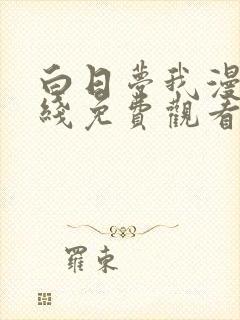 白日夢我漫
綫免費觀看
羅東